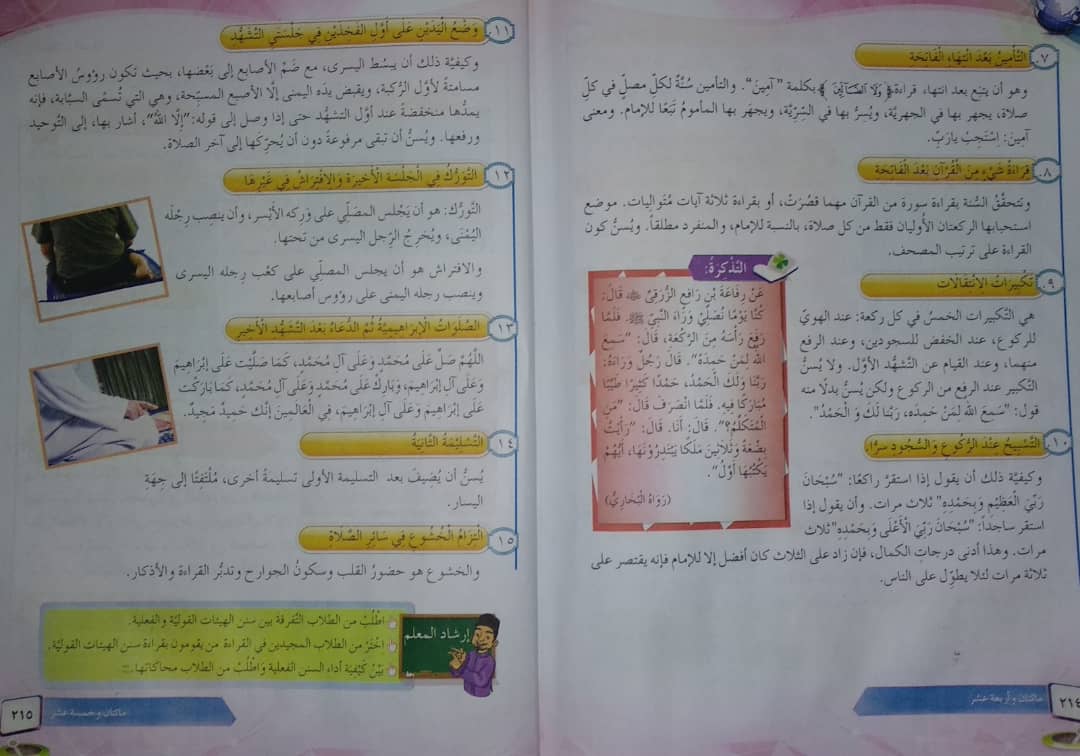 ٧. التَّأْمِينُ بَعْدَ انْتِهَاءِ الْفَاتِحَةِ
وهو أن يتبع بعد انتهاء قراءة ﴿وَلَا الضَّالِّينَ﴾ بكلمة "آمينَ". والتأمين سُنَّةٌ لكلّ مصلٍّ في كلّ
صلاة، يجهر بها في الجهريَّة، ويُسِرُّ بها في السِرّيَّة، ويجهر بها المأمومُ تبَعًا للإمام. ومعنى
آمين: اِسْتَجِبْ يا رَبّ.
٨. قِرَاءَةُ شَيْءٍ مِنَ الْقُرْآنِ بَعْدَ الْفَاتِحَةِ
وتتحقَّقُ السُّنة بقراءة سورة من القرآن مهما قصُرَتْ، أو بقراءة ثلاثة آيات مُتَواليات. وموضع
استحبابها الركعتان الأُوليان فقط من كل صلاة، بالنسبة للإمام، والمنفرد مطلقاً. ويُسنُّ كون
القراءة على ترتيب المصحف.
٩. تَكْبِيرَاتُ الِانْتِقَالَاتِ
هي التَّكبيرات الخمسُ في كل ركعة: عند الهويّ
للركوع، عند الخفض للسجودين، وعند الرفع
منهما، وعند القيام عن التَّشهُّد الأوَّل. ولا يُسنُّ
التَّكبير عند الرفع من الركوع ولكن يُسنُّ بدلًا منه
قول: "سَمِعَ اللهُ لِمَنْ حَمِدَه، رَبَّنَا لَكَ وَ الْحَمْدُ".
التَّذْكِرَةُ:
عَنْ رِفَاعَةَ بْنِ رَافِعٍ الزُّرَقِيِّ ﷺ قَالَ:
كُنَّا يَوْمًا نُصَلِّي وَرَاءَ النَّبِيِّ ﷺ. فَلَمَّا
رَفَعَ رَأْسَهُ مِنَ الرَّكْعَةِ، قَالَ: "سَمِعَ
اللهُ لِمَنْ حَمِدَهُ". قَالَ رَجُلٌ وَرَاءَهُ:
رَبَّنَا وَلَكَ الْحَمْدُ، حَمْدًا كَثِيرًا طَيِّبًا
مُبَارَكًا فِيهِ. فَلَمَّا انْصَرَفَ قَالَ: "مَنِ
الْمُتَكَلِّمُ؟". قَالَ: أَنَا. قَالَ: "رَأَيْتُ
بِضْعَةً وَثَلَاثِينَ مَلَكًا يَبْتَدِرُونَهَا، أَيُّهُمْ
يَكْتُبُهَا أَوَّلُ".
(رَوَاهُ الْبُخَارِيُّ)
١٠. التَّسْبِيحُ عِنْدَ الرُّكُوعِ وَالسُّجُودِ سِرًّا
وكيفيَّة ذلك أن يقول إذا استقرَّ راكعًا: "سُبْحَانَ
رَبِّيَ الْعَظِيمِ وَبِحَمْدِهِ" ثلاث مرات. وأن يقول إذا
استقر ساجداً: "سُبْحَانَ رَبِّيَ الْأَعْلَى وَبِحَمْدِهِ" ثلاث
مرات. وهذا أدنى درجاتِ الكمال، فإن زاد على الثلاث كان أفضل إلا للإمام فإنه يقتصر على
ثلاثة مرات لئلا يطوِّل على الناس.
مائتان وأربعة عشر
٢١٤
١١. وَضْعُ الْيَدَيْنِ عَلَى أَوَّلِ الْفَخِذَيْنِ فِي جَلْسَتَيِ التَّشَهُّدِ
وكيفيَّة ذلك أن يبسط اليسرى، مع ضَمّ الأصابع إلى بَعْضِها، بحيث تكون رؤوسُ الأصابع
مسامتةً لأوَّل الرُّكبة، ويقبض يدَه اليمنى إلّا الأصبع المسبّحة، وهي التي تُسمّى السبّابة، فإنه
يمدُّها منخفضةً عند أوَّل التشهُّد حتى إذا وصل إلى قوله: "إِلَّا اللهُ"، أشار بها، إلى التَّوحيد
ورفعها. ويُسنُّ أن تبقى مرفوعةً دون أن يُحرّكها إلى آخر الصلاة.
١٢. التَّوَرُّكُ فِي الْجَلْسَةِ الْأَخِيرَةِ وَالِافْتِرَاشُ فِي غَيْرِهَا
التَّورُّك: هو أن يَجْلس المصلّي على وَركه الأَيْسر، وأن ينصب رِجْلَه
اليُمْنى، ويُخْرجُ الرّجل اليسرى من تحتها.
والافتراش هو أن يجلس المصلّي على كعْب رجله اليسرى
وينصب رجله اليمنى على رؤوس أصابعها.
١٣. الصَّلَوَاتُ الْإِبْرَاهِيمِيَّةُ ثُمَّ الدُّعَاءُ بَعْدَ التَّشَهُّدِ الْأَخِيرِ
اللَّهُمَّ صَلِّ عَلَى مُحَمَّدٍ وَعَلَى آلِ مُحَمَّدٍ، كَمَا صَلَّيْتَ عَلَى إِبْرَاهِيمَ
وَعَلَى آلِ إِبْرَاهِيمَ، وَبَارِكْ عَلَى مُحَمَّدٍ وَعَلَى آلِ مُحَمَّدٍ، كَمَا بَارَكْتَ
عَلَى إِبْرَاهِيمَ وَعَلَى آلِ إِبْرَاهِيمَ، فِي الْعَالَمِينَ إِنَّكَ حَمِيدٌ مَجِيدٌ.
١٤. التَّسْلِيمَةُ الثَّانِيَةُ
يُسنُّ أن يُضيفَ بعد التسليمة الأولى تسليمةً أخرى، مُلْتَفِتًا إلى جِهَةِ
اليسار.
١٥. اِلْتِزَامُ الْخُشُوعِ فِي سَائِرِ الصَّلَاةِ
والخشوع هو حضورُ القلب وسكونُ الجوارح وتدبُّر القراءة والأذكار.
إرشاد المعلم
اُطْلُبْ من الطّلاب التَّفرقة بين سنن الهيئات القوليَّة والفعلية.
اخْتَرْ من الطلاب المجيدين في القراءة من يقومون بقراءة سنن الهيئات القوليَّة.
بَيِّنْ كَيْفِيَة أداء السنن الفعلية وَاطْلُبْ من الطلاب محاكاتها.
مائتان وخمسة عشر
٢١٥